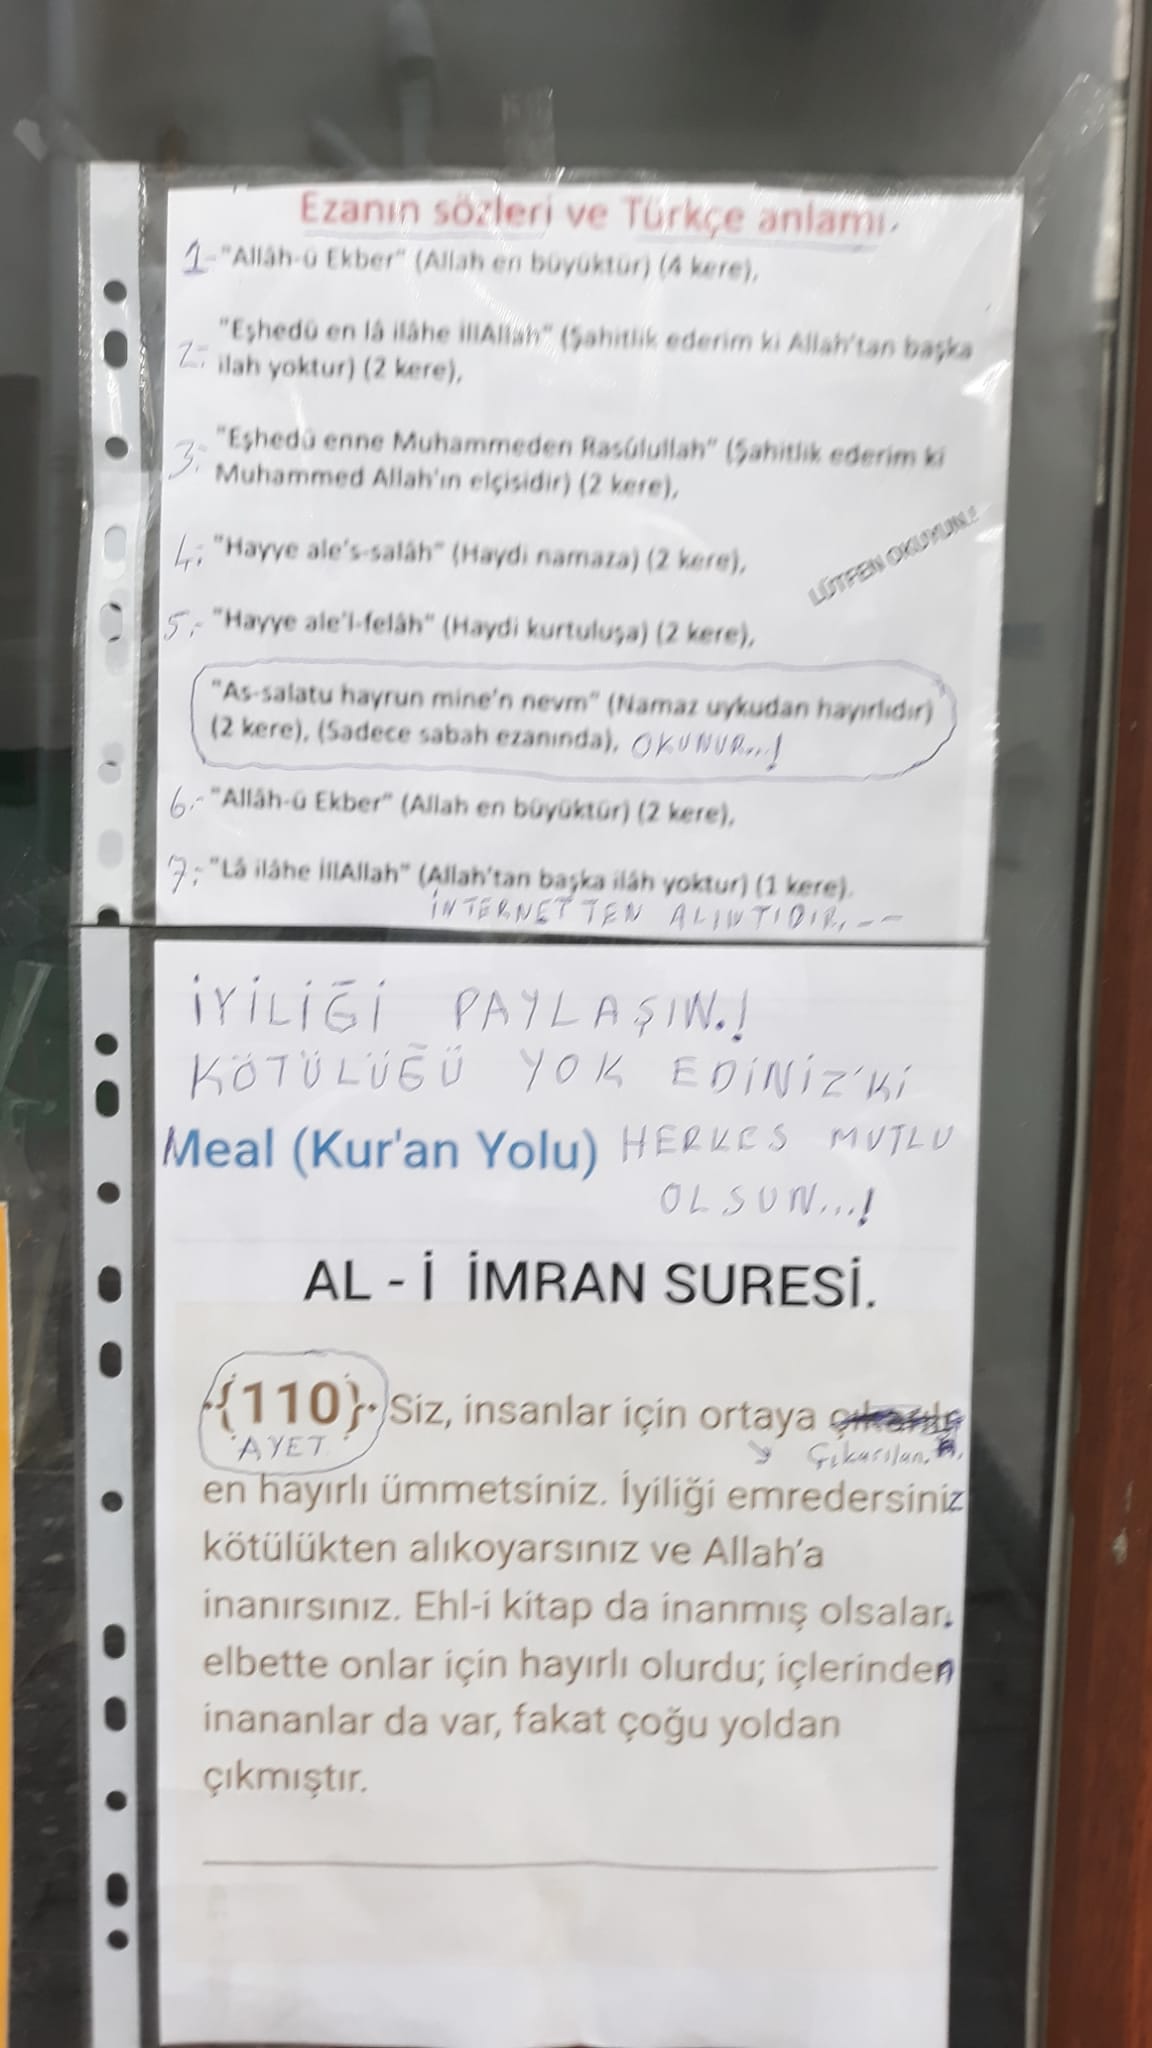 Ezanın sözleri ve Türkçe anlamı.
1- "Allâh-ü Ekber" (Allah en büyüktür) (4 kere),
"Eşhedü en lâ ilâhe İllAllah" (Şahitlik ederim ki Allah'tan başka
2: ilah yoktur) (2 kere),
3: "Eşhedü enne Muhammeden Rasûlullah" (Şahitlik ederim ki
Muhammed Allah'ın elçisidir) (2 kere),
4: "Hayye ale's-salâh" (Haydi namaza) (2 kere),
LÜTFEN OKUYUN!
5:- "Hayye ale'l-felâh" (Haydi kurtuluşa) (2 kere),
"As-salatu hayrun mine'n nevm" (Namaz uykudan hayırlıdır)
(2 kere), (Sadece sabah ezanında), OKUNUR...!
6:- "Allâh-ü Ekber" (Allah en büyüktür) (2 kere),
7: "Lâ ilâhe İllAllah" (Allah'tan başka ilâh yoktur) (1 kere).
İNTERNETTEN ALINTIDIR. --
İYİLİĞİ PAYLAŞIN.!
KÖTÜLÜĞÜ YOK EDİNİZ'Kİ
Meal (Kur'an Yolu) HERKES MUTLU
OLSUN...!
AL - İ İMRAN SURESİ.
{110} Siz, insanlar için ortaya
AYET Çıkarılan.
en hayırlı ümmetsiniz. İyiliği emredersiniz
kötülükten alıkoyarsınız ve Allah'a
inanırsınız. Ehl-i kitap da inanmış olsalar.
elbette onlar için hayırlı olurdu; içlerinden
inananlar da var, fakat çoğu yoldan
çıkmıştır.